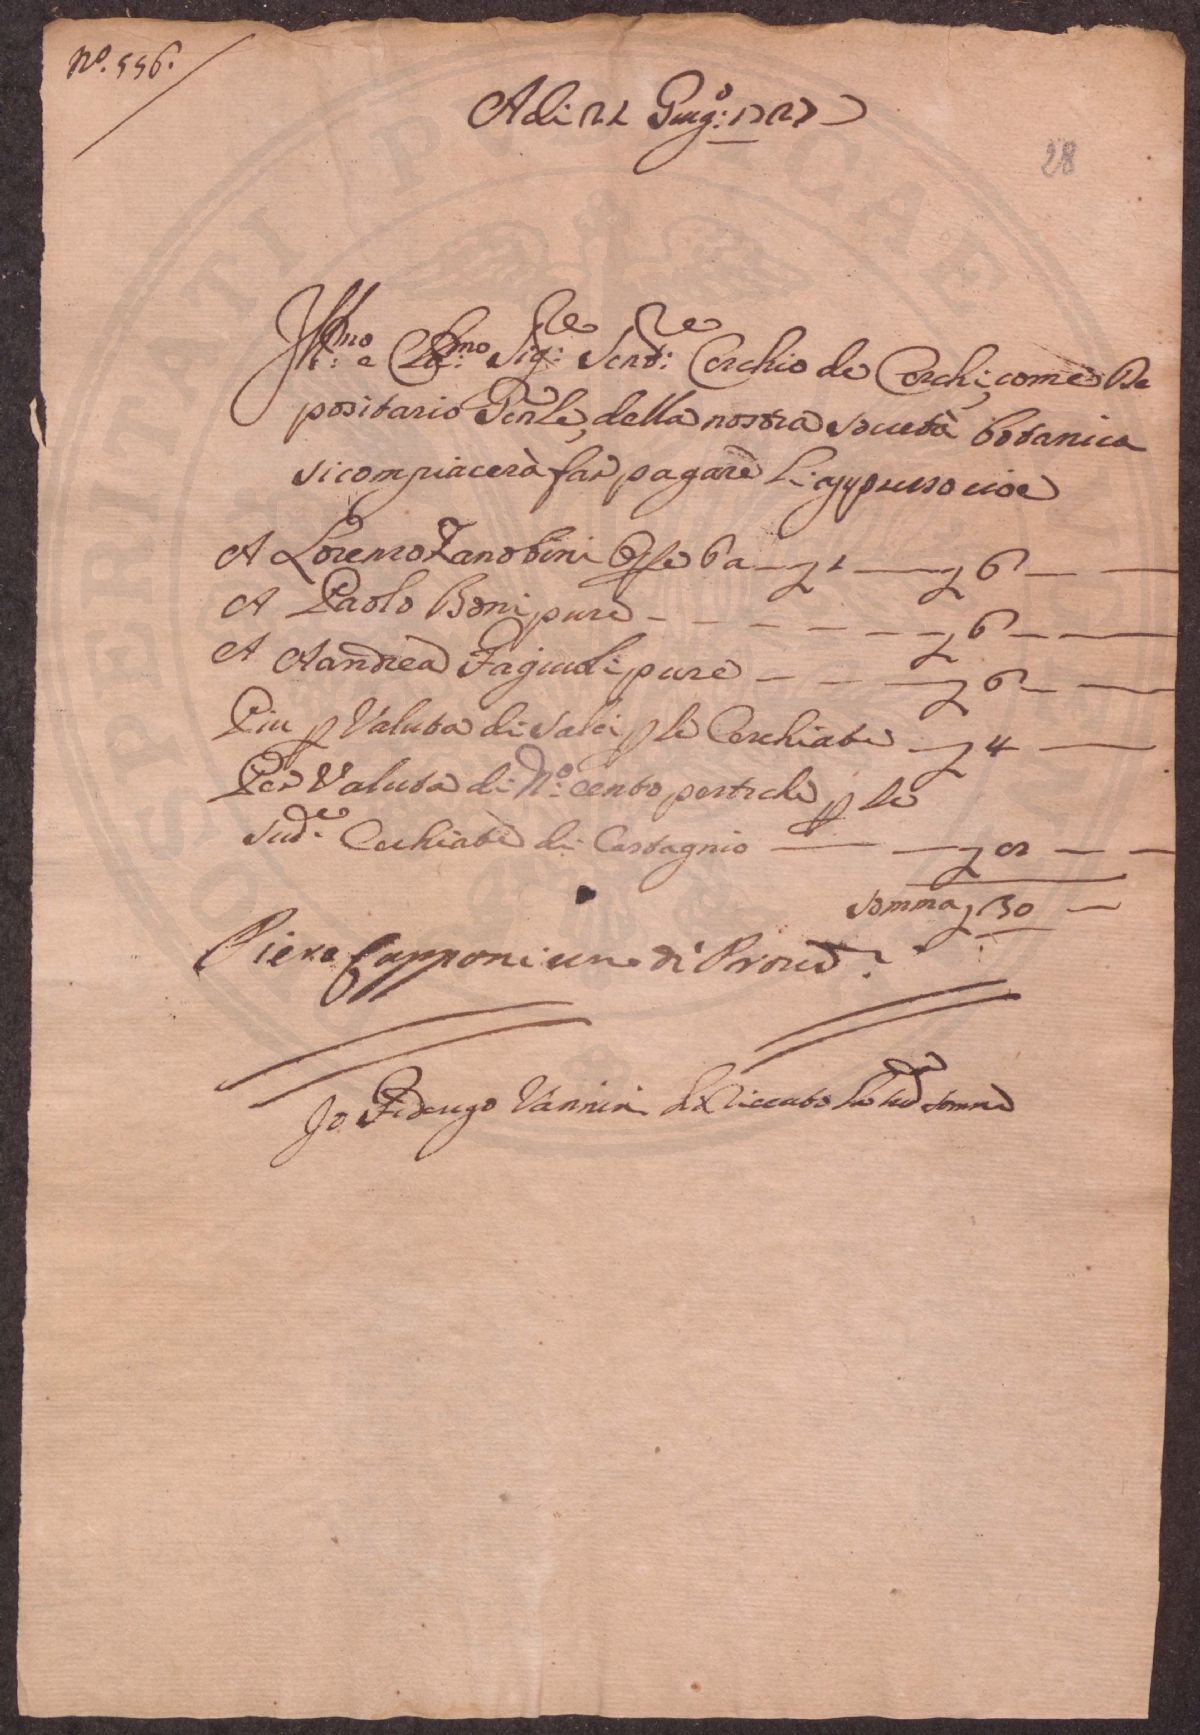 No. 556.
Adi 21 Giug.o 1727
28
Ill.mo e Cla.mo Sig.re Send.re Cerchio de Cerchi, come De
positario Gen.le, della nostra società botanica
si compiacerà far pagare li appresso cioè
A Lorenzo Zanobini Op.e 6 a — £ 1 — £ 6 —
A Paolo Boni pure — £ 6 —
A Aandrea Fagiuoli pure — £ 6 —
Piu p Valuta di salci p le Cerchiate — £ 4 —
Per Valuta di No. cento pertiche p le
sud.e Cerchiate di Castagnio — £ 8 —
Somma £ 30 —
Piero Capponi uno di Proved.
Io Federigo Vannini ho riceuto la sud.a somma